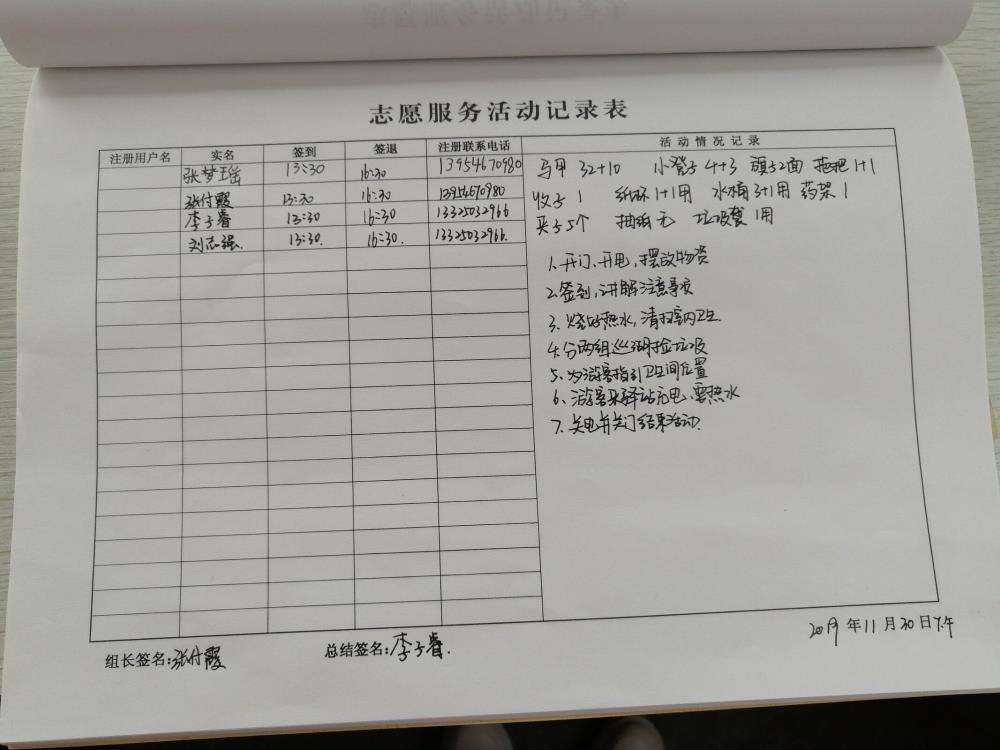 志愿服务活动记录表
注册用户名 实名 签到 签退 注册联系电话 活动情况记录
张梦瑶 13:30 16:30 13954670980
张付霞 13:30 16:30 13954670980
李子睿 13:30 16:30 13325032966
刘志强. 13:30. 16:30. 13325032966.
马甲 32+10 小凳子 4+3 旗子2面 拖把 1+1
收子 1 纸杯 1+1用 水桶 3+1用 药架 1
夹子5个 抽纸 无 垃圾袋 1用
1.开门、开电,摆放物资
2.签到,讲解注意事项
3.烧好热水,清扫室内卫生.
4.分两组巡湖捡垃圾
5、为游客指引卫生间位置
6、游客来驿站充电、要热水
7.关电并关门结束活动.
2019年11月30日下午
组长签名:张付霞 总结签名:李子睿.